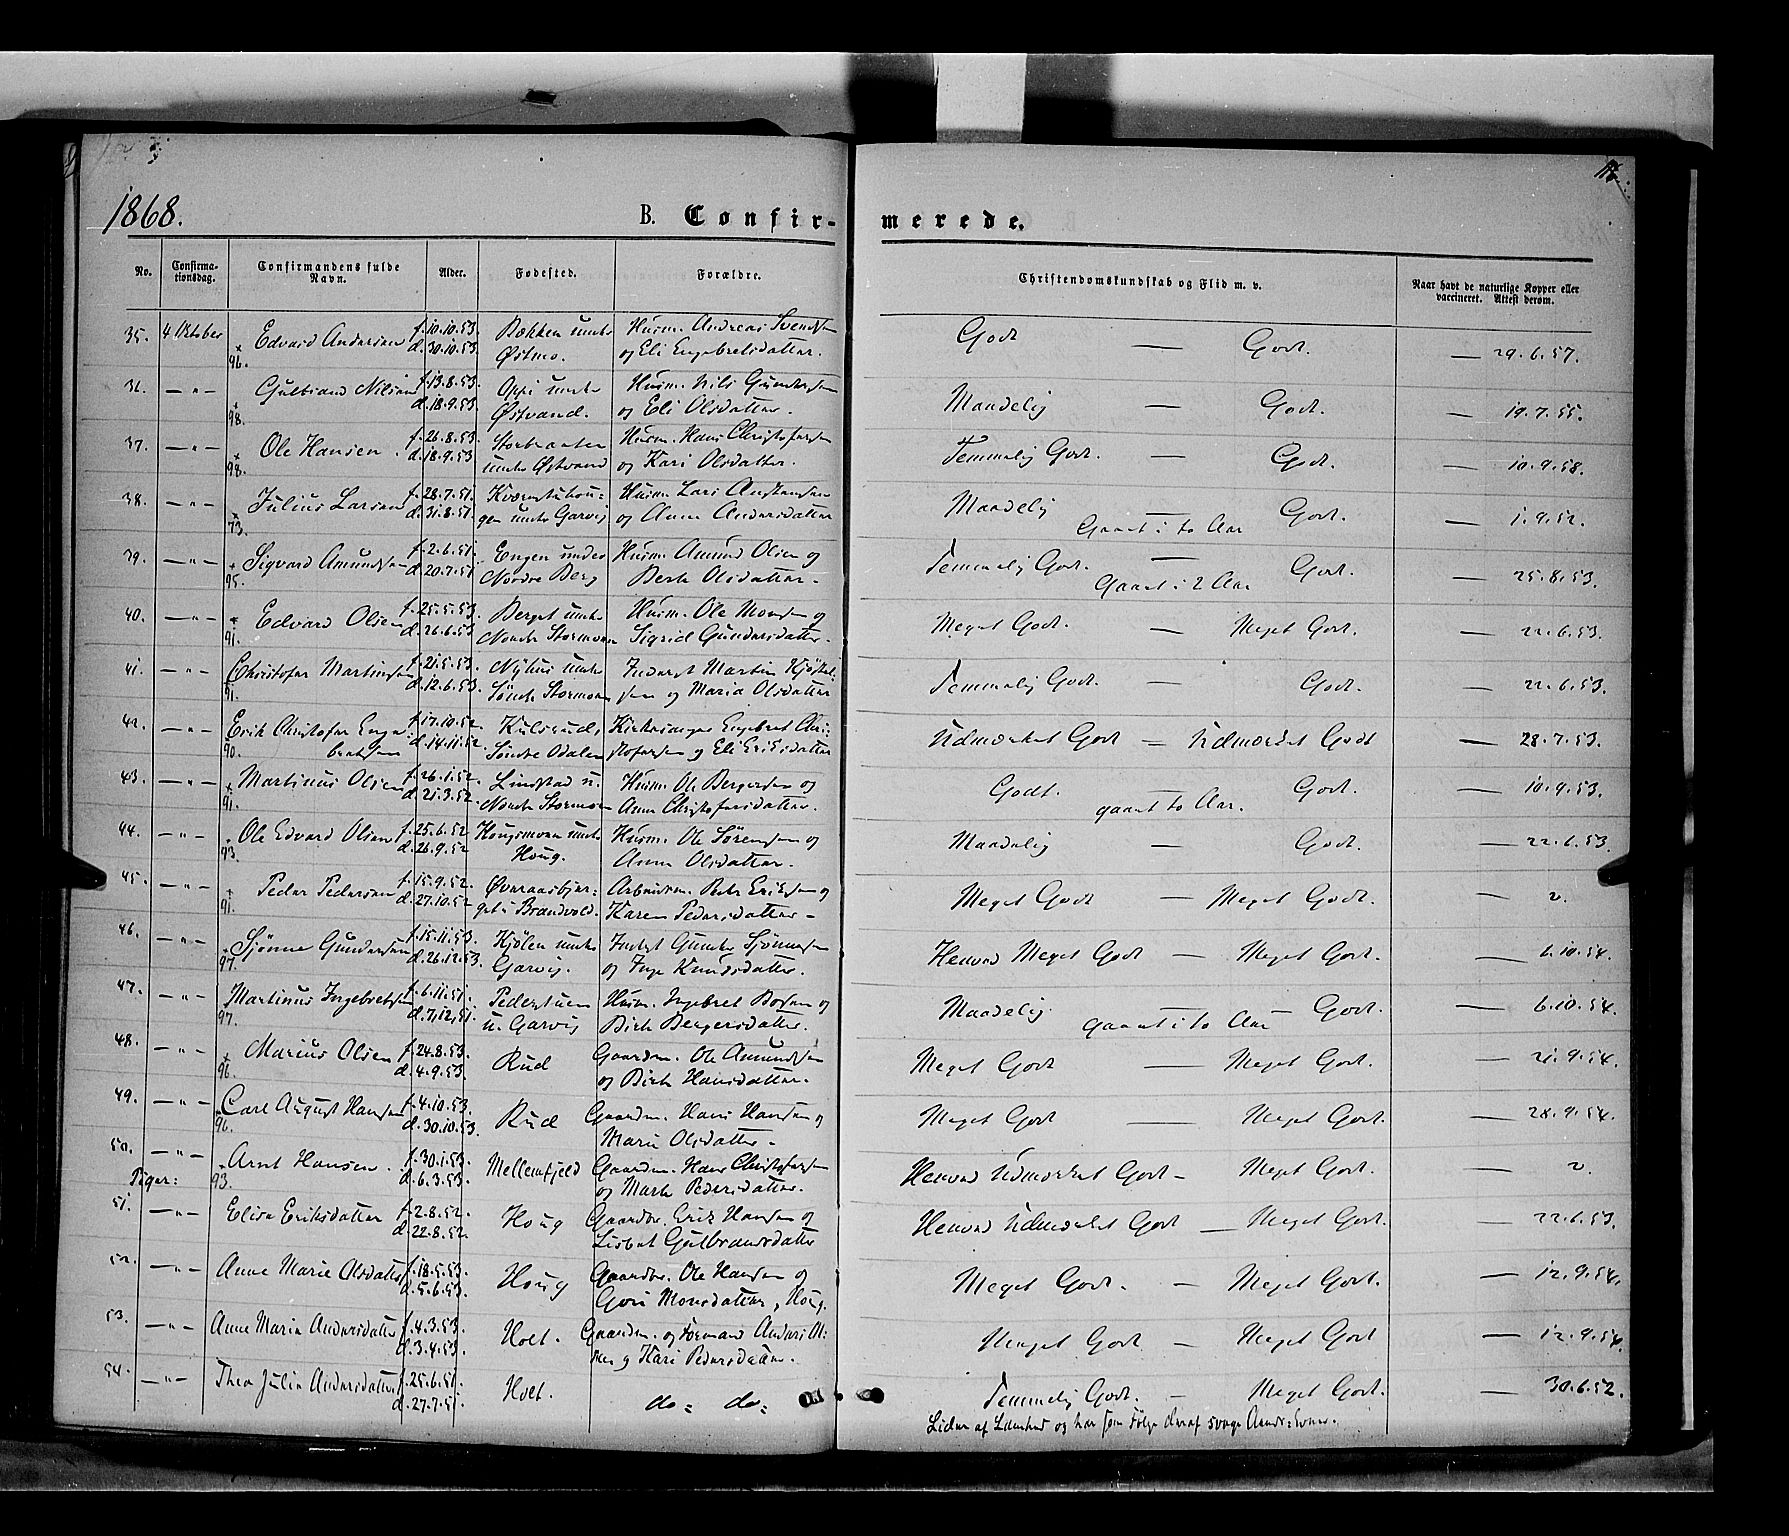 1868.
B. Confir-
merede.
No.
Confirma-
tionsdag.
Confirmandens fulde
Navn.
Alder.
Fødested.
Forældre.
Christendomskundskab og Flid m. v.
Naar havt de naturlige Kopper eller
vaccineret. Attest derom.
35. 4 Oktober Edvard Andersen f. 10.10.53. Bækken under Husm. Andreas Svends Godt — Godt. — 29.6.57.
96. d. 30.10.53. Østmo. og Eli Engebretsdatter.
36. — " — Gulbrand Nilsen f. 13.8.53. under Husm. Nils Gundersen Maadelig — Godt. — 19.7.55.
98. d. 18.9.53. Østvand. og Eli Olsdatter.
37. — " — Ole Hansen f. 26.8.53. Storbraaten Husm. Hans Christofersen Temmelig Godt. — Godt. — 10.9.58.
98. d. 18.9.53 under Østvand og Kari Olsdatter.
38. — " — Julius Larsen f. 28.7.51. Husm. Lars Maadelig — Godt. — 1.9.52.
73. d. 31.8.51. gen under Garvig og Anne Andersdatter Gaaet i to Aar
39. — " — Sigvard Amundsen f. 2.6.51. Engen under Husm. Amund Olsen og Temmelig Godt. — Godt. — 25.8.53.
95. d. 20.7.51 Nordre Berg Berte Olsdatter. Gaaet i 2 Aar
40. — " — Edvard Olsen f. 25.5.53. Berget under Husm. Ole Monsen og Meget Godt. — Meget Godt. — 22.6.53.
91. d. 26.6.53 Nordre Stormoen Sigrid Gundersdatter.
41. — " — Christofer Martinsen f. 21.5.53. Nyhus under Inderst Martin Kjøstel- Temmelig Godt. — Godt. — 22.6.53.
91. d. 12.6.53. Søndre Stormoen sen og Maria Olsdatter
42. — " — Erik Christofer Enge- f. 17.10.52. Kulsrud, Kirkesanger Engebret Chri- Udmærket Godt — Udmærket Godt — 28.7.53.
90. bretsen d. 14.11.52. Søndre Odalen stofersen og Eli Eriksdatter
43. — " — Martinus Olsen f. 26.1.52. Lindstad u. Husm. Ole Bergersen og Godt. — Godt. — 10.9.53.
91. d. 21.3.52. Nordre Stormoen Anne Christofersdatter. gaaet to Aar.
44. — " — Ole Edvard Olsen f. 25.6.52. Hougsmoen under Husm. Ole Sørensen og Maadelig — Godt. — 22.6.53.
93. d. 26.9.52 Houg. Anne Olsdatter.
45. — " — Peder Pedersen f. 15.9.52. Øveraasbjer- Arbeidsm. Peder Eriksen og Meget Godt — Meget Godt. — v.
91. d. 27.10.52 get i Brandvold. Karen Pedersdatter
46. — " — Sjønne Gundersen f. 15.11.53. Kjølen under Inderst Gunder Sjønnesen Henved Meget Godt — Meget Godt. — 6.10.54.
97. d. 26.12.53. Garvig. og Inge Knudsdatter.
47. — " — Martinus Ingebretsen f. 6.11.51. Pederstuen Husm. Ingebret Boesen og Maadelig — Godt. — 6.10.54.
97. d. 7.12.51. u. Garvig Birte Bergersdatter. gaaet i to Aar
48. — " — Marius Olsen f. 24.8.53. Rud Gaardm. Ole Amundsen Meget Godt — Meget Godt. — 21.9.54.
96. d. 4.9.53. og Birte Hansdatter.
49. — " — Carl August Hansen f. 4.10.53. Rud Gaardm. Hans Hansen og Meget Godt — Meget Godt. — 28.9.54.
96. d. 30.10.53. Marie Olsdatter
50. — " — Arnt Hansen. f. 30.1.53. Mellemfjeld Gaardm. Hans Christofersen Henved Udmærket Godt — Meget Godt. — v.
Piger: 93. d. 6.3.53. og Marte Pedersdatter.
51. — " — Elise Eriksdatter f. 2.8.52. Houg Gaardbr. Erik Hansen og Henved Udmærket Godt — Meget Godt. — 22.6.53.
d. 22.8.52. Lisbet Gulbrandsdatter
52. — " — Anne Marie Olsdatter f. 18.5.53. Houg Gaardbr. Ole Hansen og Meget Godt. — Meget Godt. — 12.9.54.
d. 5.6.53. Goro Monsdatter, Houg.
53. — " — Anne Marie Andersdatter f. 4.3.53. Holt. Gaardm. og Formand Anders Ol- Meget Godt — Meget Godt — 12.9.54.
d. 3.4.53. sen og Kari Pedersdatter.
54. — " — Thea Julie Andersdatter f. 25.6.51. Holt. do: do: Temmelig Godt. — Meget Godt. — 30.6.52.
d. 27.7.51. Lider af Lamhed og har som Følge deraf svage Aands-Evner.